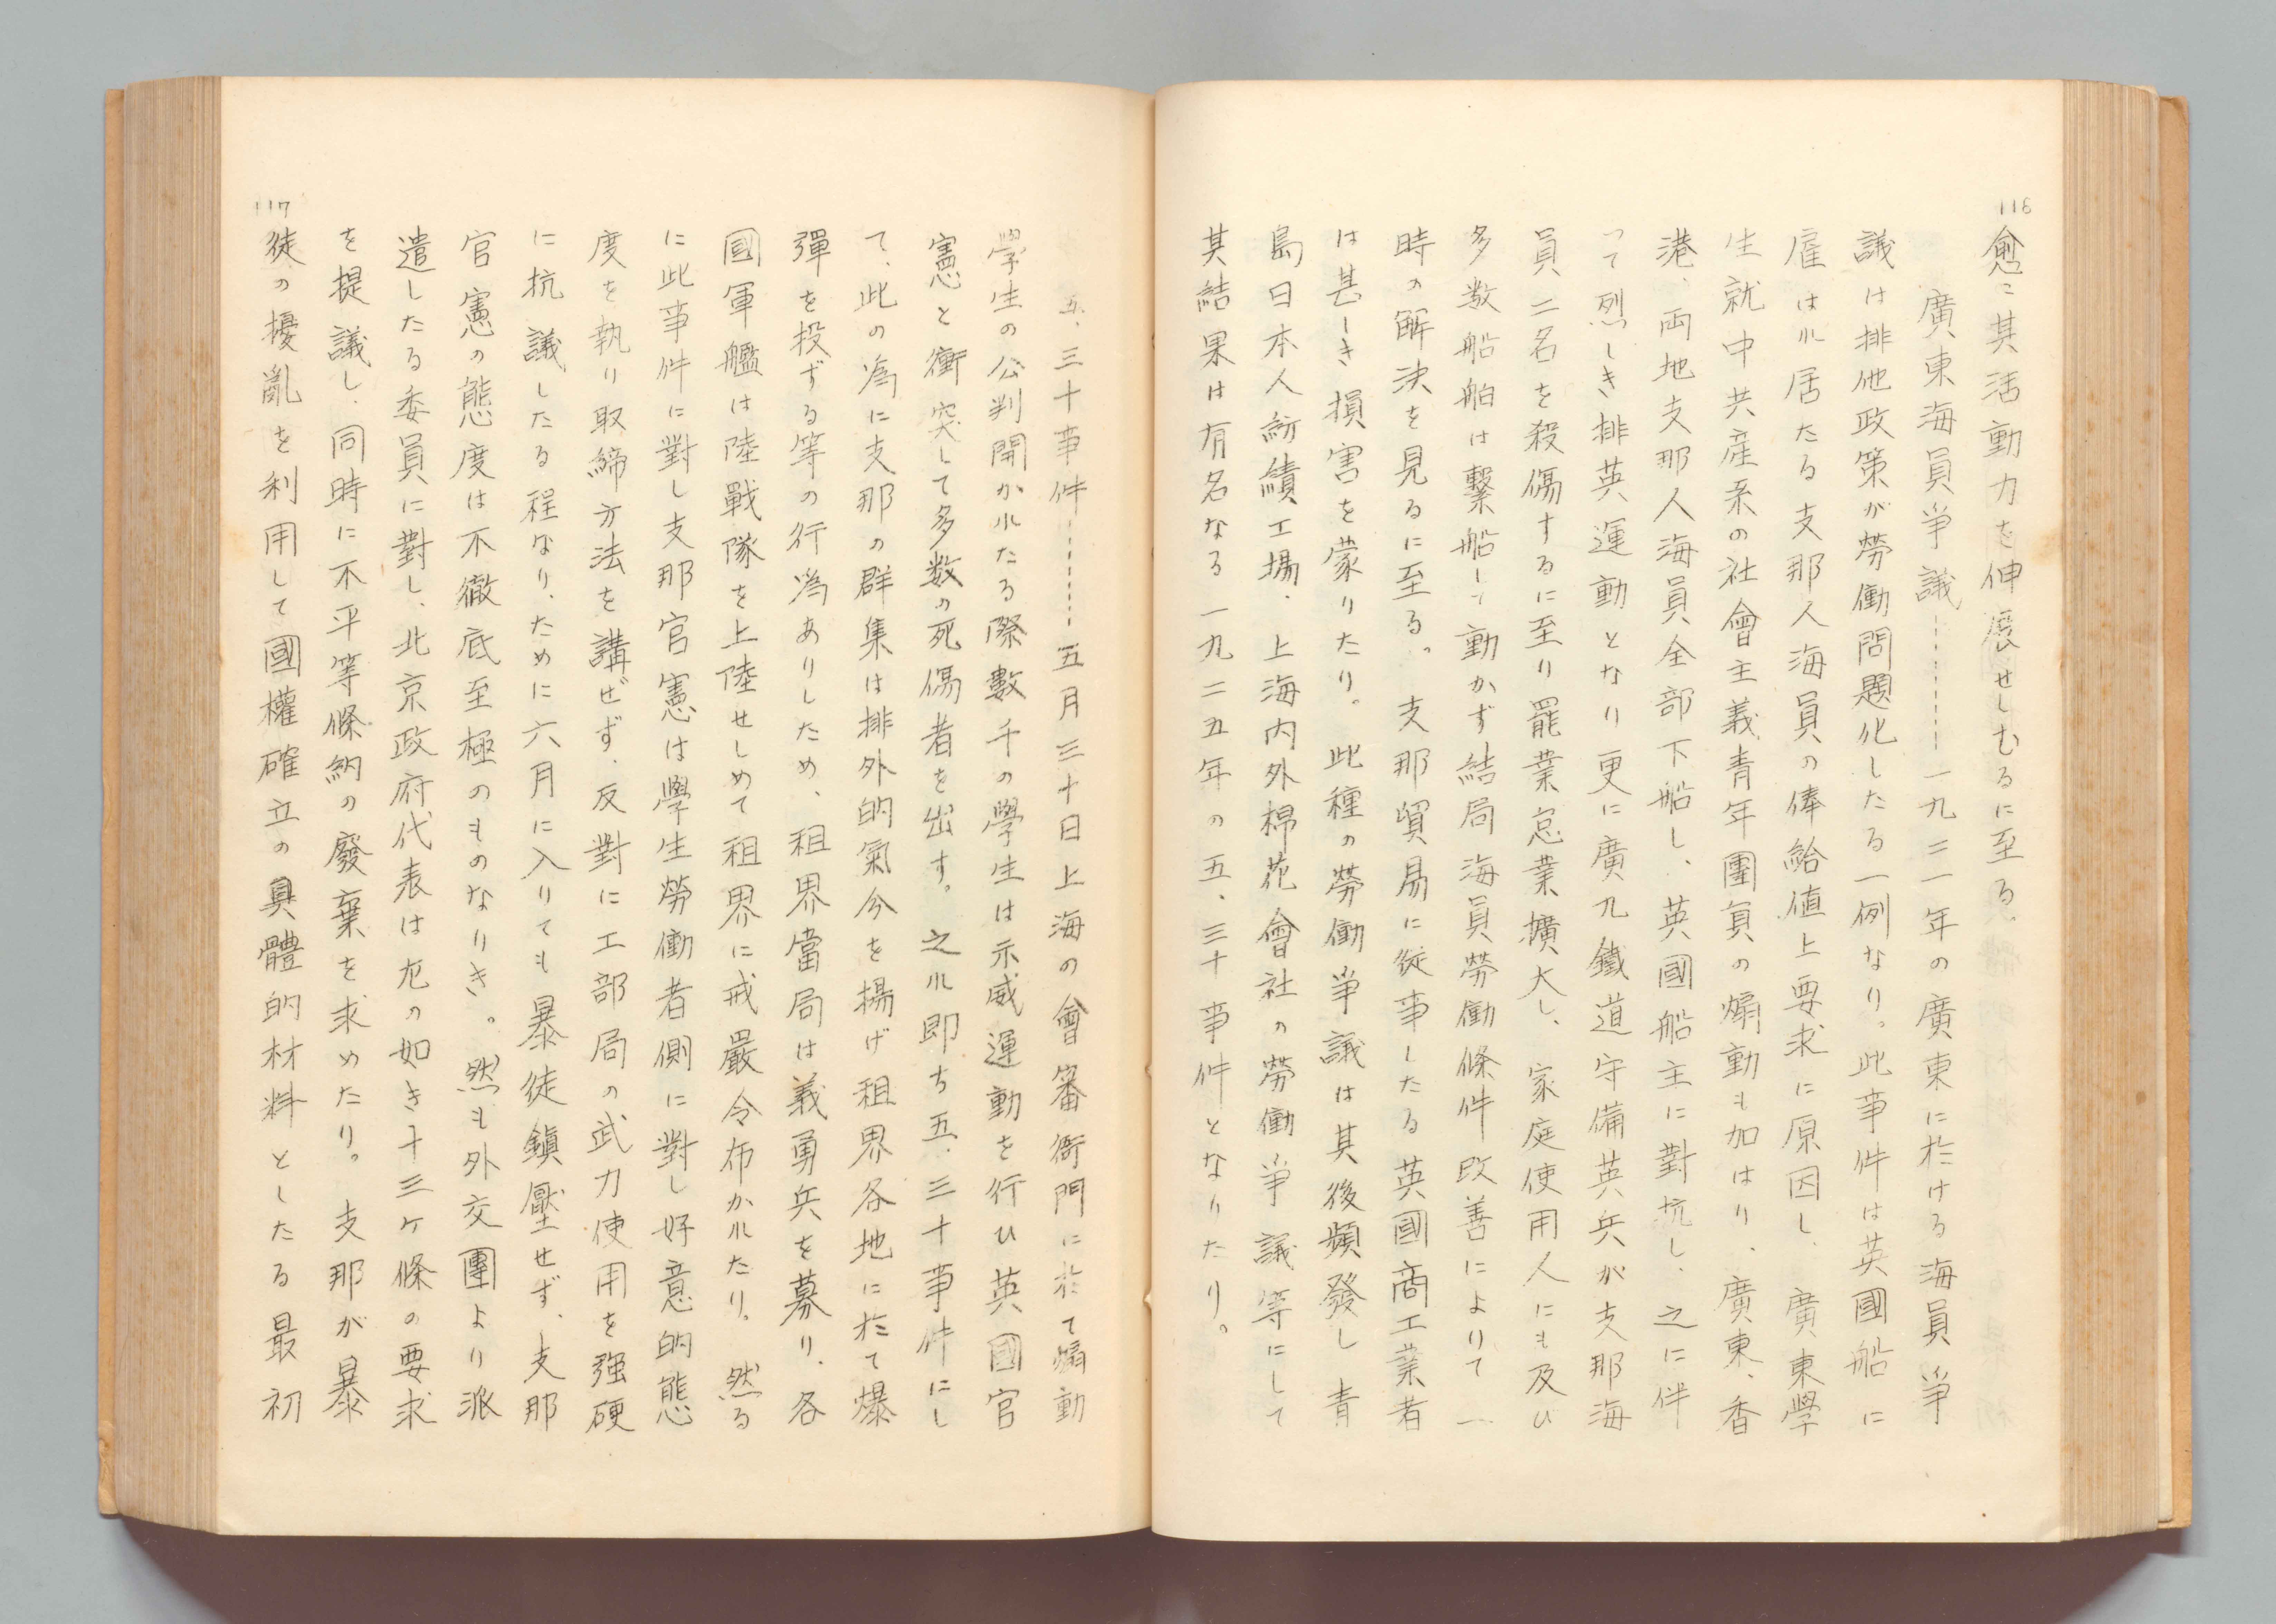 116
愈々其活動力を伸展せしむるに至る。
廣東海員爭議…………一九二一年の廣東に於ける海員爭
議は排他政策が勞働問題化したる一例なり。此事件は英國船に
雇はれ居たる支那人海員の俸給値上要求に原因し、廣東學
生就中共産系の社會主義青年團員の煽動も加はり、廣東、香
港、両地支那人海員全部下船し、英國船主に對抗し、之に伴
って烈しき排英運動となり更に廣九鐵道守備英兵が支那海
員二名を殺傷するに至り罷業怠業擴大し、家庭使用人にも及ひ
多数船舶は繋船して動かず結局海員勞働條件改善によりて一
時の解決を見るに至る。支那貿易に從事したる英國商工業者
は甚しき損害を蒙りたり。此種の勞働爭議は其後頻發し青
島日本人紡績工場、上海内外棉花會社の勞働爭議等にして
其結果は有名なる一九二五年の五、三十事件となりたり。
五、三十事件…………五月三十日上海の會審衙門に於て煽動
學生の公判開かれたる際數千の學生は示威運動を行ひ英國官
憲と衝突して多数の死傷者を出す。之れ即ち五、三十事件にし
て、此の為に支那の群集は排外的氣分を揚げ租界各地に於て爆
彈を投ずる等の行為ありしため、租界當局は義勇兵を募り、各
國軍艦は陸戰隊を上陸せしめて租界に戒嚴令布かれたり。然る
に此事件に對し支那官憲は學生勞働者側に對し好意的態
度を執り取締方法を講ぜず、反對に工部局の武力使用を强硬
に抗議したる程なり、ために六月に入りても暴徒鎭壓せず、支那
官憲の態度は不徹底至極のものなりき。然も外交團より派
遣したる委員に對し、北京政府代表は左の如き十三ヶ條の要求
を提議し、同時に不平等條約の廢棄を求めたり。支那が暴
徒の擾亂を利用して國權確立の具體的材料としたる最初
117